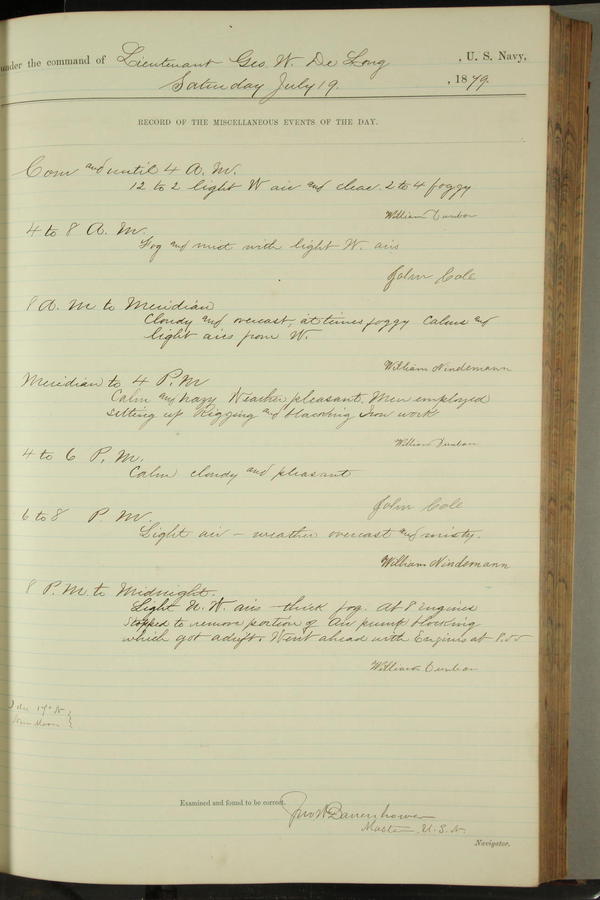 under the command of Lieutenant Geo. W. De Long , U. S. Navy,
Saturday July 19. , 1879.
RECORD OF THE MISCELLANEOUS EVENTS OF THE DAY.
Com and until 4 A. M.
12 to 2 light W air and clear. 2 to 4 foggy
William Dunbar
4 to 8 A. M.
Fog and mist with light W. airs
John Cole
8 A. M to Meridian
Cloudy and overcast, at times foggy Calms and
light airs from W.
William Nindemann
Meridian to 4 P. M
Calm and hazy Weather pleasant. Men employed
setting up Rigging and blacking Iron work
William Dunbar
4 to 6 P. M.
Calm cloudy and pleasant
John Cole
6 to 8 P. M.
Light air - weather overcast and misty.
William Nindemann
8 P. M. to Midnight.
Light N. W. airs - thick fog. At 8 Engines
stopped to remove portion of Air pump blocking
which got adrift. Went ahead with Engines at 8.55
William Dunbar
Examined and found to be correct.
Jno W Danenhower
Master, U. S. N.
Navigator.